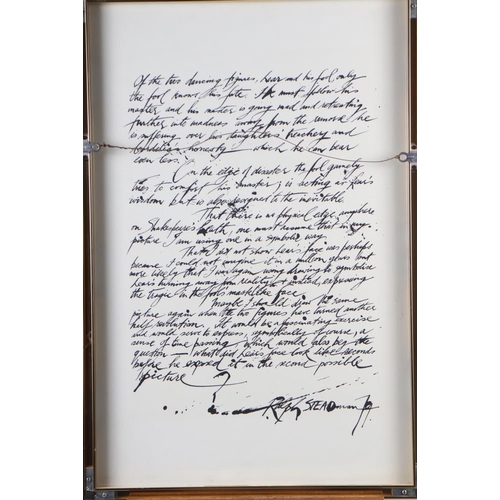 Of the two dancing figures, Lear and his fool only
the fool knows his fate. He must follow his
master and his master is going mad and retreating
further into madness away from the remorse he
is suffering over two daughters' treachery and
Cordelia's honesty which he can bear
even less.
On the edge of disaster the fool gamely
tries to comfort his master; is acting as Lear's
wisdom but is also resigned to the inevitable
That there is no physical edge anywhere
on Shakespeare's heath, one must assume that in my
picture I am using one in a symbolic way.
That I do not show Lear's face was perhaps
because I could not imagine it in a million years but
more likely that I was again using drawing to symbolise
Lear's turning away from reality & instead, expressing
the tragic in the fool's masklike face.
Maybe I should draw the same
picture again when the two figures have turned another
half revolution. It would be a fascinating exercise
and would serve to express, symbolically of course, a
sense of time passing which would also beg the
question — what did Lear's face look like seconds
before he exposed it in the second possible
picture?
Ralph STEADman